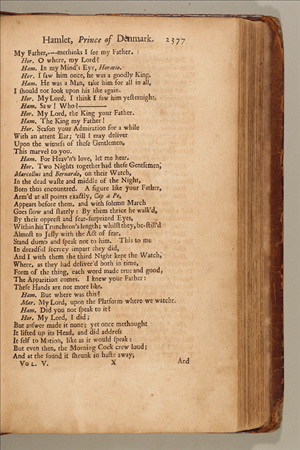 Hamlet, Prince of Denmark. 2377
My Father,----methinks I see my Father.
Hor. O where, my Lord?
Ham. In my Mind's Eye, Horatio.
Hor. I saw him once, he was a goodly King.
Ham. He was a Man, take him for all in all,
I should not look upon his like again.
Hor. My Lord, I think I saw him yesternight.
Ham. Saw! Who?————
Hor. My Lord, the King your Father.
Ham. The King my Father!
Hor. Season your Admiration for a while
With an attent Ear; 'till I may deliver
Upon the witness of these Gentlemen,
This marvel to you.
Ham. For Heav'n's love, let me hear.
Hor. Two Nights together had these Gentlemen,
Marcellus and Bernardo, on their Watch,
In the dead waste and middle of the Night,
Been thus encountred. A figure like your Father,
Arm'd at all points exactly, Cap a Pe,
Appears before them, and with solemn March
Goes slow and stately: By them thrice he walk'd,
By their opprest and fear-surprized Eyes,
Within his Truncheon's length; whilst they, be-still'd
Almost to Jelly with the Act of fear,
Stand dumb and speak not to him. This to me
In dreadful secrecy impart they did,
And I with them the third Night kept the Watch,
Where, as they had deliver'd both in time,
Form of the thing, each word made true and good,
The Apparition comes. I knew your Father:
These Hands are not more like.
Ham. But where was this?
Hor. My Lord, upon the Platform where we watcht.
Ham. Did you not speak to it?
Hor. My Lord, I did;
But answer made it none; yet once methought
It lifted up its Head, and did address
It self to Motion, like as it would speak:
But even then, the Morning Cock crew loud;
And at the sound it shrunk in haste away,
VOL. V. X And